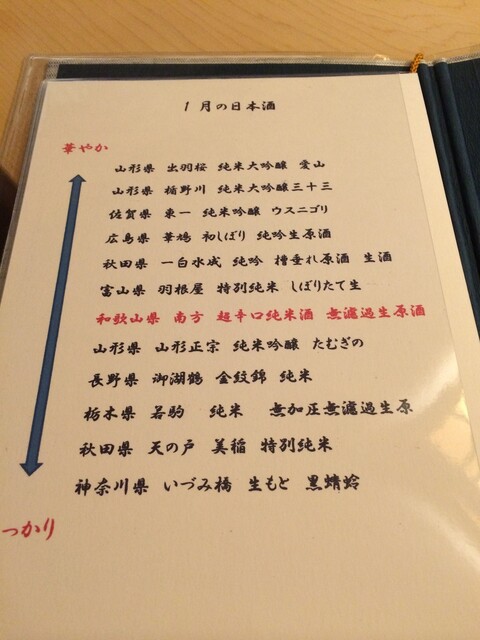 1月の日本酒
華やか
山形県 出羽桜 純米大吟醸 愛山
山形県 楯野川 純米大吟醸三十三
佐賀県 東一 純米吟醸 ウスニゴリ
広島県 華鳩 初しぼり 純吟生原酒
秋田県 一白水成 純吟 槽垂れ原酒 生酒
富山県 羽根屋 特別純米 しぼりたて生
和歌山県 南方 超辛口純米酒 無濾過生原酒
山形県 山形正宗 純米吟醸 たむぎの
長野県 御湖鶴 金紋錦 純米
栃木県 若駒 純米 無加圧無濾過生原
秋田県 天の戸 美稲 特別純米
神奈川県 いづみ橋 生もと 黒蜻蛉
っかり